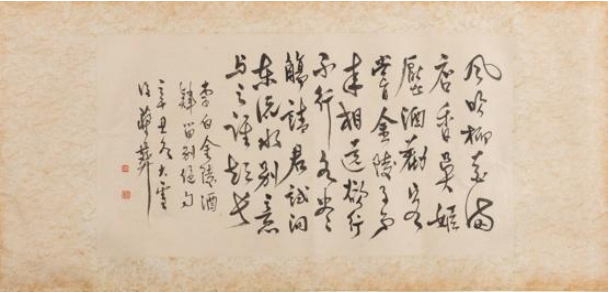 風吹柳花滿
店香吳姬
壓酒勸客
嘗金陵子弟
來相送欲行
不行各盡
觴請君試問
東流水別意
與之誰短長
李白金陵酒
肆留別絕句
辛丑冬大雪